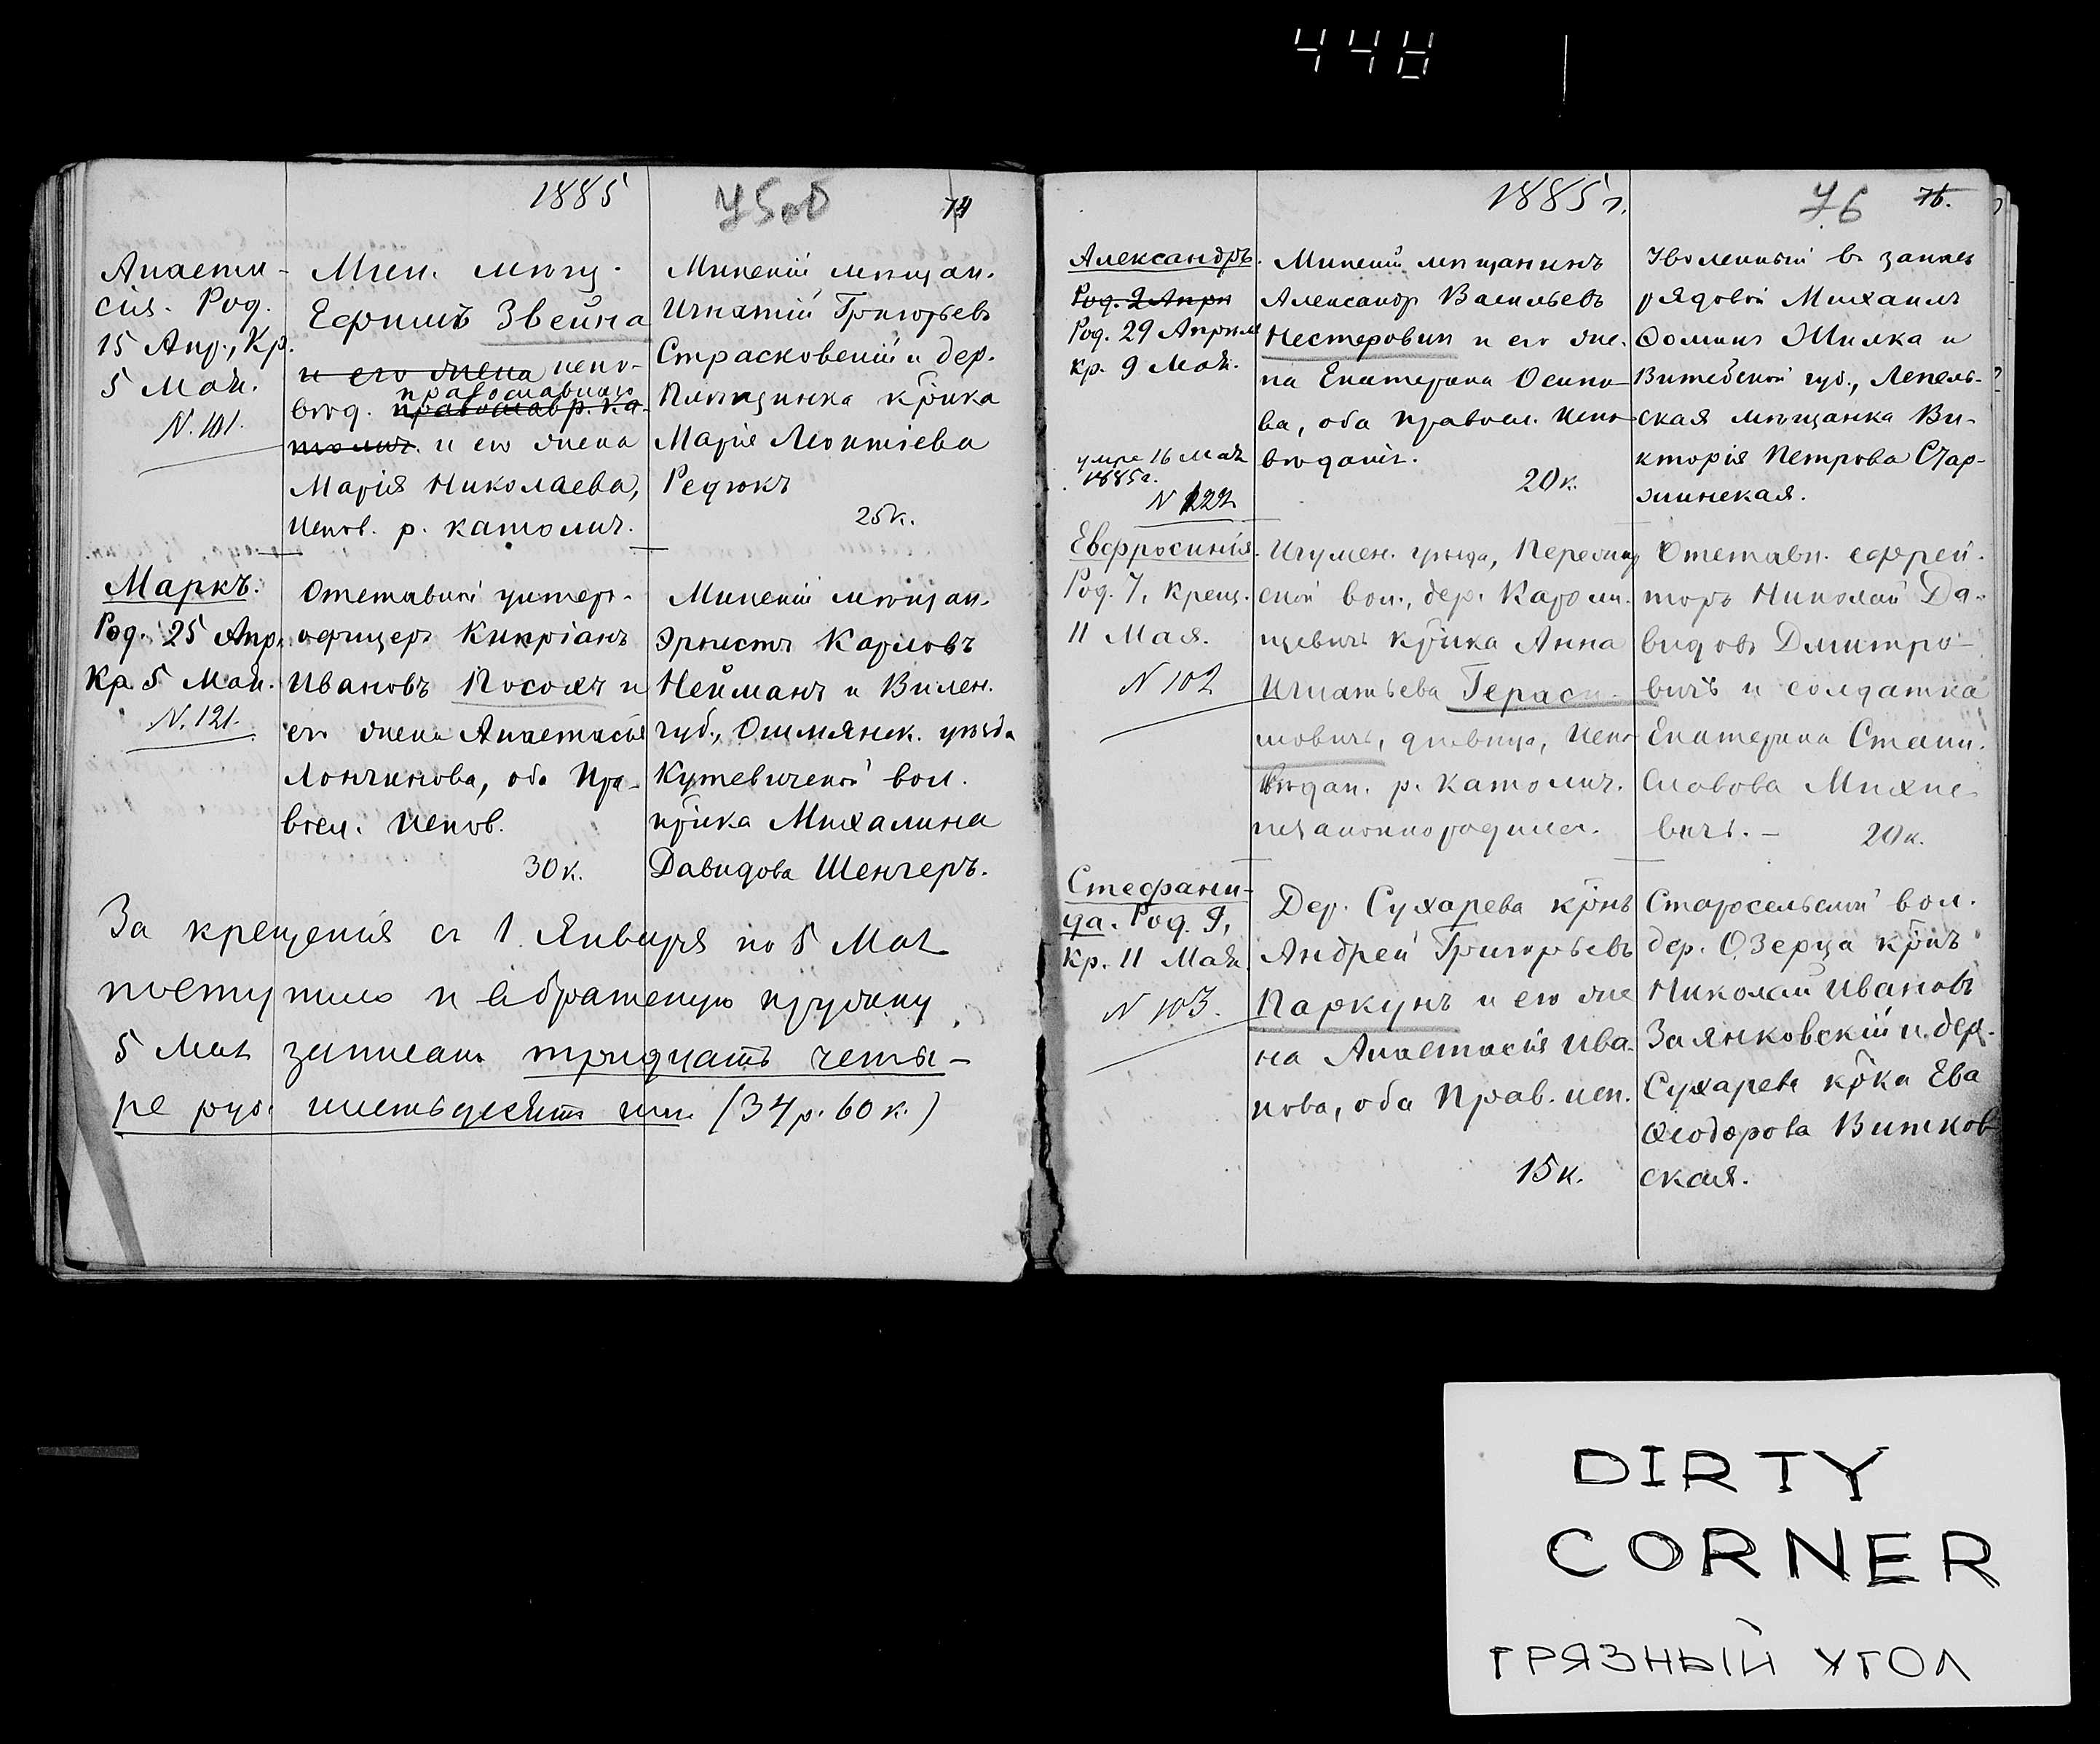 448
1885
75об
74
Анаста-
сія. Род.
15 Апр., Кр.
5 Мая.
N. 101.
Мин. мѣщ.
Ефимъ Звейна
и его жена испо-
православнаго
вѣд. православ р. ка-
толич. и его жена
Марія Николаева,
испов. р. католич.
Минскій мѣщан.
Игнатій Григорьевъ
Страсковскій и дер.
крѣка
Марія Леонтіева
Редюкъ
25 к.
Маркъ.
Род. 25 Апр.
Кр. 5 Мая.
N. 121.
Отставной унтеръ-
офицеръ Кипріанъ
Ивановъ Посохъ и
его жена Анастасія
Лонгинова, оба Пра-
восл. испов.
30 к.
Минскій мѣщан.
Эрнестъ Карловъ
Нейманъ и Вилен.
губ., Ошмянск. уѣзда
Кутевичской вол.
крѣка Михалина
Давидова Шенгеръ.
За крещенія съ 1 Января по 5 Мая
поступило и въ братскую кружку
5 Мая записано тридцать четы-
ре руб. шестьдесятъ коп. (34 р. 60 к.)
1885 г.
76
75.
Александръ.
Род. 2 Апрѣ
Род. 29 Апрѣля
кр. 9 Мая.
умре 16 Мая
1885 г.
N 122
Минскій мѣщанинъ
Александр Васильевъ
Нестеровичъ и его же-
на Екатерина Осипо-
ва, оба правосл. испо-
вѣданія.
20 к.
Уволенный въ запасъ
рядовой Михаилъ
Ѳоминъ Жилка и
Витебской губ., Лепель-
ская мѣщанка Ви-
кторія Петрова Стар-
жинская.
Евфросинія.
Род. 7, крещ.
11 Мая.
N 102
Игумен. уѣзда,
ской вол., дер. Кароли-
цевичъ крѣка Анна
Игнатьева Гераси-
мовичъ, дѣвица, испо-
вѣдан. р. католич.
незаконнорождена.
Отставн. ефрей-
торъ Николай Да-
видовъ Дмитро-
вичъ и солдатка
Екатерина Стани-
славова Михне-
вичъ. —
20 к.
Стефани-
да. Род. 9,
кр. 11 Мая.
N 103.
Дер. Сухарева крѣнъ
Андрей Григорьевъ
Паркунъ и его же-
на Анастасія Ива-
нова, оба Прав. исп.
15 к.
Старосельской вол.
дер. Озерца крѣнъ
Николай Ивановъ
Залянковскій и дер.
Сухарева крѣка Ева
Ѳеодорова Витков-
ская.
DIRTY
CORNER
ГРЯЗНЫЙ УГОЛ